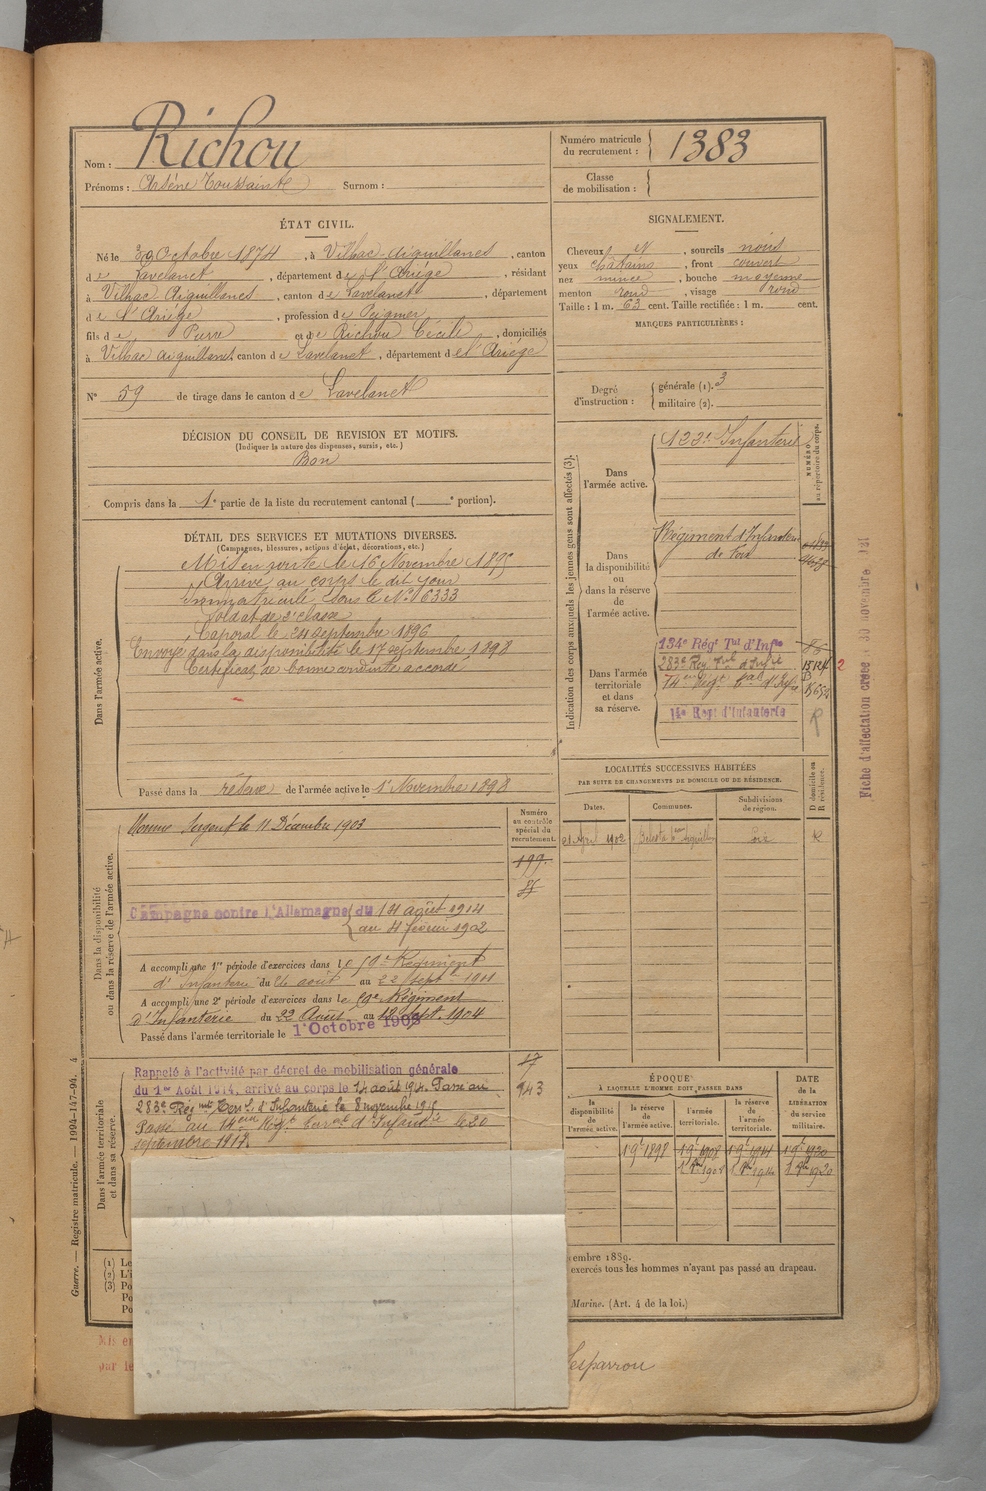 Nom : Richou
Prénoms : Arsène Toussaint Surnom :
Numéro matricule
du recrutement : 1383
Classe
de mobilisation :
ÉTAT CIVIL.
Né le 30 Octobre 1874, à Vilhac-Aiguillanes, canton
de Lavelanet, département de l'Ariège, résidant
à Vilhac Aiguillanes, canton de Lavelanet, département
de l'Ariège, profession de Peigneur
fils de Pierre et de Richou Cécile, domiciliés
à Vilhac Aiguillanes canton de Lavelanet, département de l'Ariège
N° 59 de tirage dans le canton de Lavelanet
DÉCISION DU CONSEIL DE REVISION ET MOTIFS.
(Indiquer la nature des dispenses, sursis, etc.)
Bon
Compris dans la 1e partie de la liste du recrutement cantonal ( e portion).
SIGNALEMENT.
Cheveux N, sourcils noirs
yeux châtains, front couvert
nez mince, bouche moyenne
menton rond, visage rond
Taille : 1 m. 63 cent. Taille rectifiée : 1 m. cent.
MARQUES PARTICULIÈRES :
Degré
d'instruction :
générale (1). 3
militaire (2).
DÉTAIL DES SERVICES ET MUTATIONS DIVERSES.
(Campagnes, blessures, actions d'éclat, décorations, etc.)
Dans l'armée active.
Mis en route le 16 Novembre 1895
Arrivé au corps le dit jour
Immatriculé sous le N° 6333
Soldat de 2e classe
Caporal le 24 septembre 1896
Envoyé dans la disponibilité le 17 septembre 1898
Certificat de bonne conduite accordé
Passé dans la réserve de l'armée active le 1er Novembre 1898
Dans la disponibilité
ou dans la réserve de l'armée active.
Numéro
au contrôle
spécial du
recrutement.
Nommé Sergent le 11 Décembre 1903
199
Campagne contre l'Allemagne du 14 août 1914
au 4 février
A accompli une 1re période d'exercices dans le 59e Régiment
d'Infanterie du 26 août au 22 Sept 1901
A accompli une 2e période d'exercices dans le 59e Régiment
d'Infanterie du 22 Août au 18 Sept. 1904
Passé dans l'armée territoriale le 1er Octobre 1908
Dans l'armée territoriale
et dans sa réserve.
17
943
Rappelé à l'activité par décret de mobilisation générale
du 1er Août 1914, arrivé au corps le 14 août 1914. Passé au
283e Régiment Terr. d'Infanterie le 8 novembre 1915
Passé au 74eme Régt terral d'Infanterie le 20
septembre 1917.
Indication des corps auxquels les jeunes gens sont affectés (3).
NUMÉRO
au répertoire du corps.
Dans
l'armée active.
122e Infanterie
Dans
la disponibilité
ou
dans la réserve
de
l'armée active.
Régiment d'Infanterie
de Foix
Dans l'armée
territoriale
et dans
sa réserve.
134e Régt Tal d'Infie
283e Reg. Tal d'Infie
74eme Régt Tal d'Infie
14e Régt d'Infanterie
R
2
Fiche d'affectation créée le 30 novembre 1921
LOCALITÉS SUCCESSIVES HABITÉES
PAR SUITE DE CHANGEMENTS DE DOMICILE OU DE RÉSIDENCE.
D domicile ou
R résidence.
Dates.
Communes.
Subdivisions
de région.
21 Avril 1902 Foix R
ÉPOQUE
À LAQUELLE L'HOMME DOIT PASSER DANS
DATE
de la
LIBÉRATION
du service
militaire.
la
disponibilité
de l'armée active.
la réserve
de
l'armée active.
l'armée
territoriale.
la réserve
de
l'armée
territoriale.
1 9bre 1898
Guerre. — Registre matricule. — 1994-147-94. 4
(1) Le
(2) L'i
(3) Po
Po
Po
embre 1889.
exercés tous les hommes n'ayant pas passé au drapeau.
Marine. (Art. 4 de la loi.)
Mis en
par le
Lesparrou